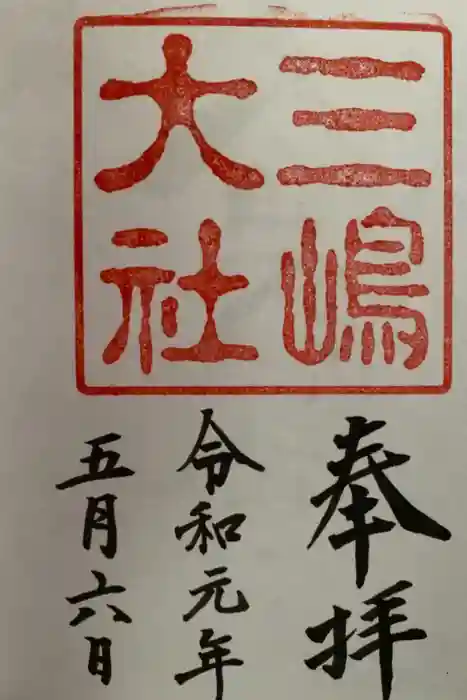 三嶋
大社
奉拝
令和元年
五月六日